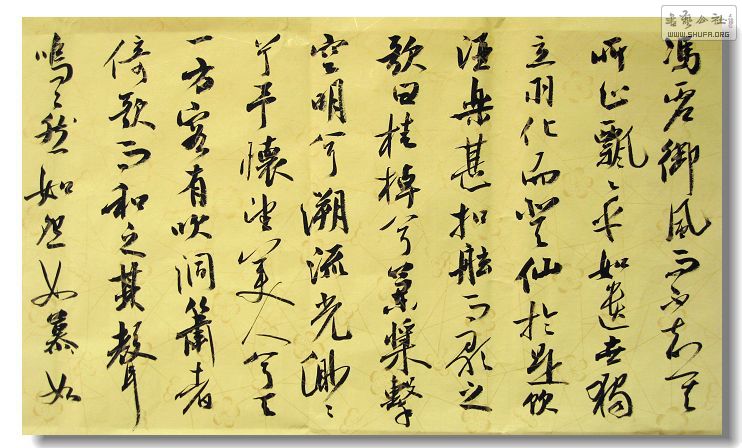 馮虛御風而不知其
所止飄々乎如遺世獨
立羽化而登仙於是飲
酒樂甚扣舷而歌之
歌曰桂棹兮蘭槳擊
空明兮溯流光渺々
兮予懷望美人兮天
一方客有吹洞簫者
倚歌而和之其聲
嗚々然如怨如慕如
书艺公社
WWW.SHUFA.ORG